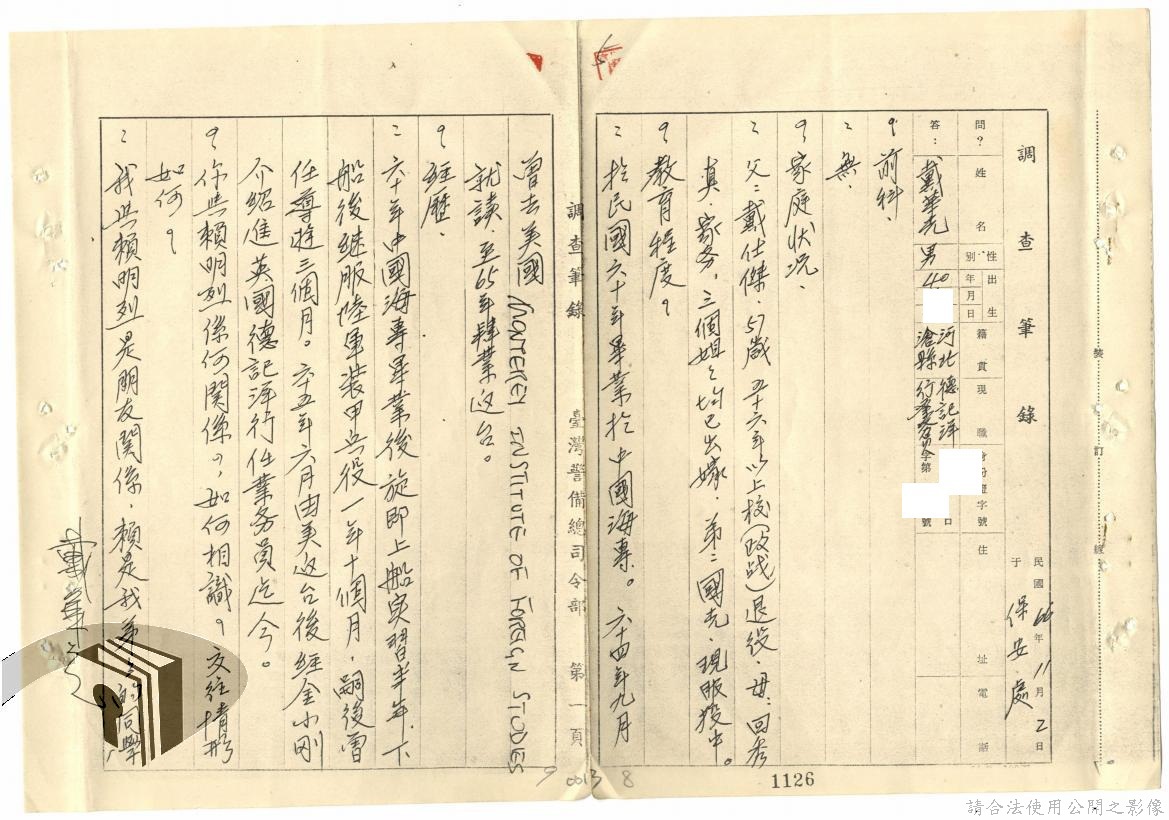 調查筆錄
民國66年11月2日
于 保安處
問? 姓名 性別 出生年月日 籍貫 現職 身份證字號 住址 電話
答: 戴華光 男 40 河北滄縣 德記洋行業務員 字第 號
? 前科、
: 無、
? 家庭狀況、
: 父:戴仕傑、57歲 五十六年以上校(政战)退役、母:回秀
真、家务,三個姐々均已出嫁、弟:國光、現服役中。
? 教育程度?
: 於民國六十年畢業於中國海專。六十四年九月
裝 訂 線
1126
調查筆錄 臺灣警備總司令部 第一頁
曾去美國 MONTEREY INSTITUTE OF FOREIGN STUDIES
就讀、至65年肄業返台。
? 經歷、
: 六十年中國海專畢業後旋即上船實習半年、下
船後继服陸軍裝甲兵役一年十個月,嗣後曾
任導遊三個月。六十五年六月由美返台後經金小刚
介紹進英國德記洋行任業务員迄今。
? 你與賴明烈係何関係?,如何相識?交往情形
如何?
: 我與賴明烈是朋友関係,賴是我弟々的同學,
戴華光
9 0013 8
請合法使用公開之影像